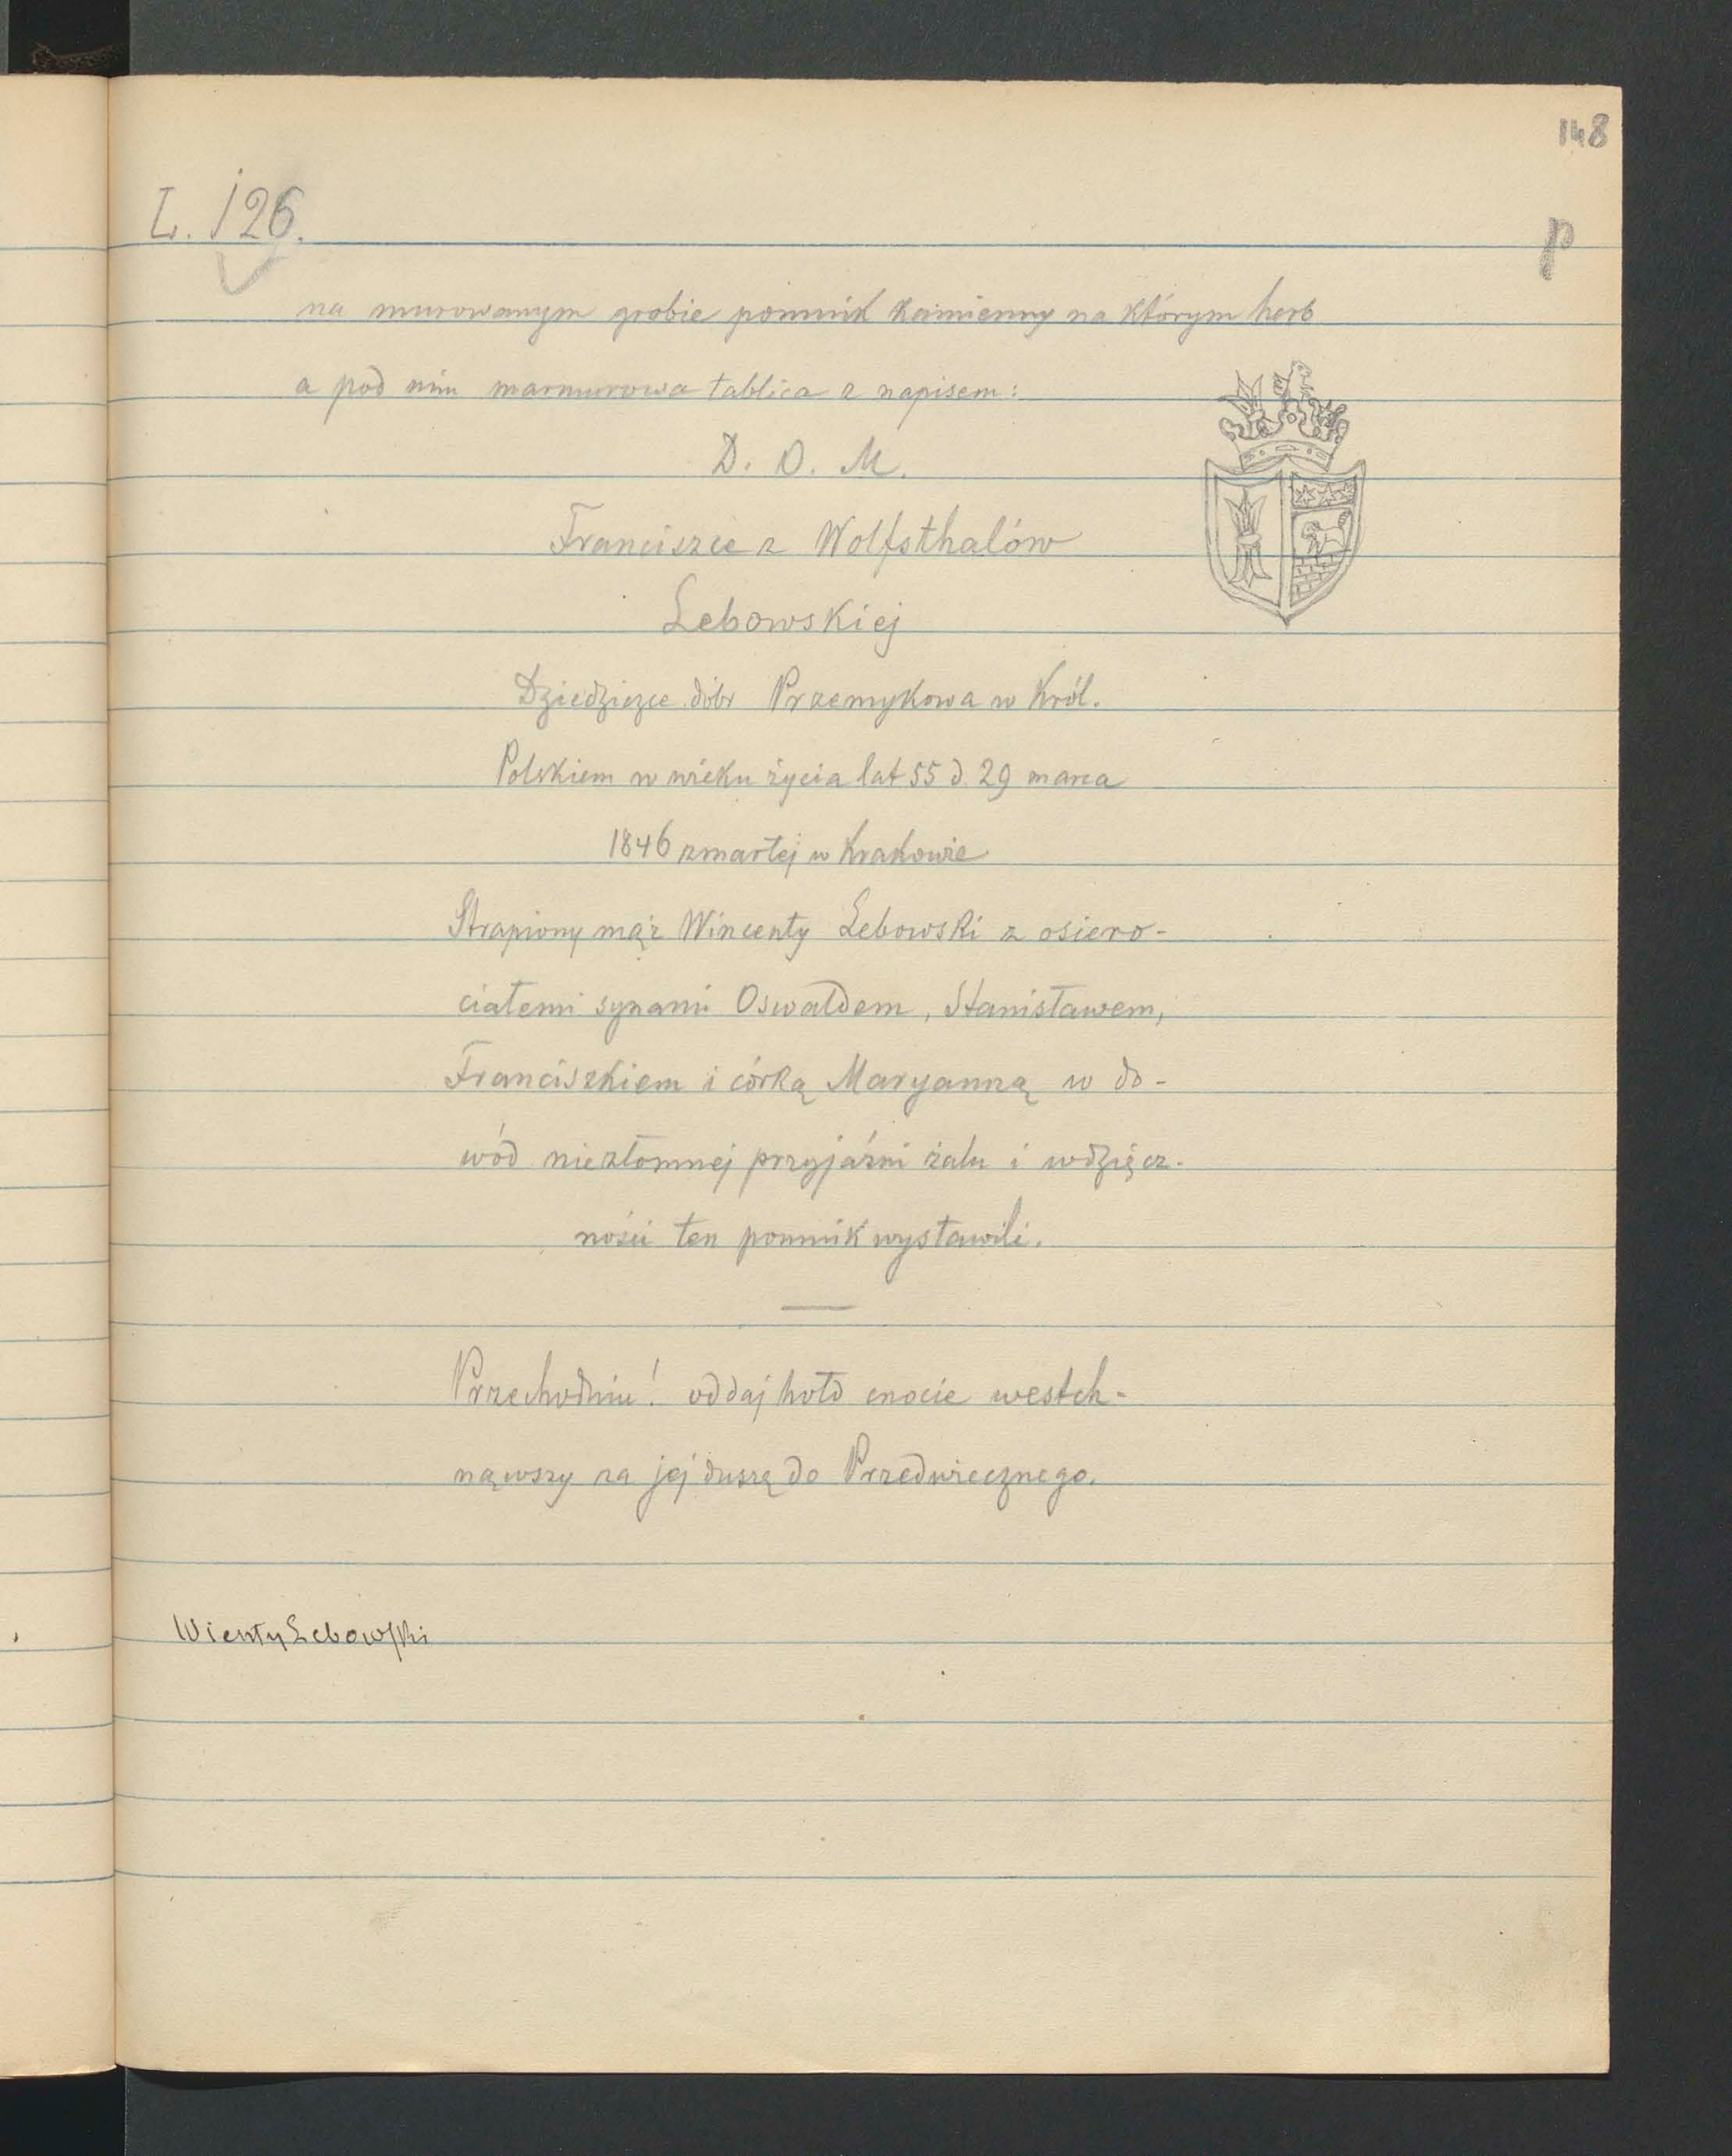 148
L. 126.
p
na murowanym grobie pomnik kamienny na którym herb
a pod nim marmurowa tablica z napisem:
D. O. M.
Franciszce z Wolfsthalów
Lebowskiej
Dziedziczce dóbr Przemykowa w Król.
Polskiem w wieku życia lat 55 d. 29 marca
1846 zmarłej w Krakowie
Strapiony mąż Wincenty Lebowski z osiero-
ciałemi synami Oswaldem, Stanisławem,
Franciszkiem i córką Maryanną w do-
wód niezłomnej przyjaźni żalu i wdzięcz-
ności ten pomnik wystawili.
Przechodniu! oddaj hołd cnocie westch-
nąwszy za jej duszę do Przedwiecznego.
Wienty Lebowski